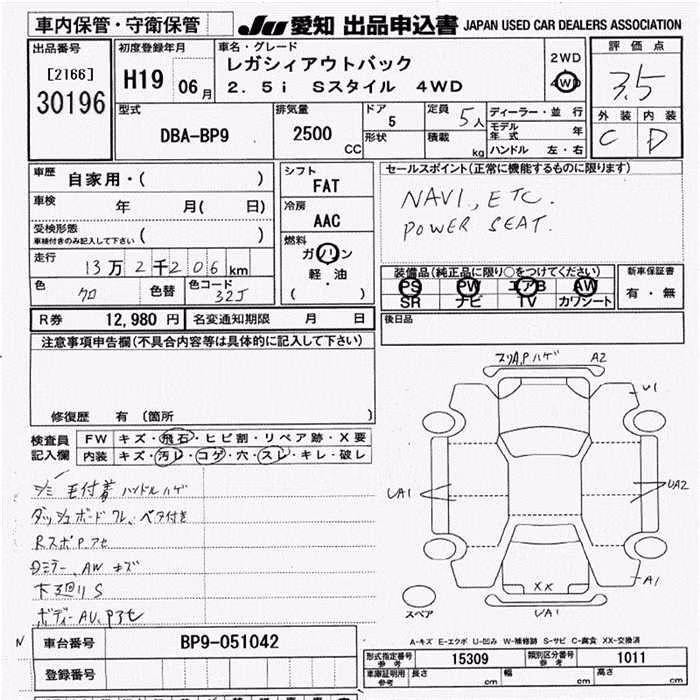 車内保管・守衛保管
JU 愛知 出品申込書 JAPAN USED CAR DEALERS ASSOCIATION
出品番号
[2166]
30196
初度登録年月
H19 06月
車名・グレード
レガシィアウトバック
2.5i Sスタイル 4WD
2WD
4WD
評価点
3.5
外装 内装
C D
型式
DBA-BP9
排気量
2500 CC
ドア
5
形状
定員 5人
積載 kg
ディーラー・並行
モデル年式 年
ハンドル 左・右
車歴 自家用・( )
車検 年 月( 日)
受検形態
車検付きのみ記入して下さい ( )
走行 13万2千206km
色 クロ 色替 色コード 32J
シフト
FAT
冷房
AAC
燃料
ガソリン
軽・油
( )
セールスポイント(正常に機能するものに限ります)
NAVI, ETC.
POWER SEAT.
装備品(純正品に限り○をつけてください)
PS PW エアB AW
SR ナビ TV カワシート
新車保証書
有・無
R券 12,980円 名変通知期限 月 日
後日品
注意事項申告欄(不具合内容等は具体的に記入して下さい)
修復歴 有 (箇所 )
検査員記入欄
FW キズ・飛石・ヒビ割・リペア跡・X要
内装 キズ・汚レ・コゲ・穴・スレ・キレ・破レ
シミ 毛付着 ハンドルハゲ
ダッシュボード ワレ、ベタ付き
RスポPアセ
Dミラー、AW キズ
下廻りS
ボディーAU、Pアセ
スリA,Pハゲ A2
U1
UA1
UA2
A1
XX
UA1
スペア
A-キズ E-エクボ U-凹み W-補修跡 S-サビ C-腐食 XX-交換済
N 車台番号 BP9-051042
登録番号
型式指定番号 参考 15309 類別区分番号 参考 1011
車庫証明用 参考 長さ cm 幅 cm 高さ cm